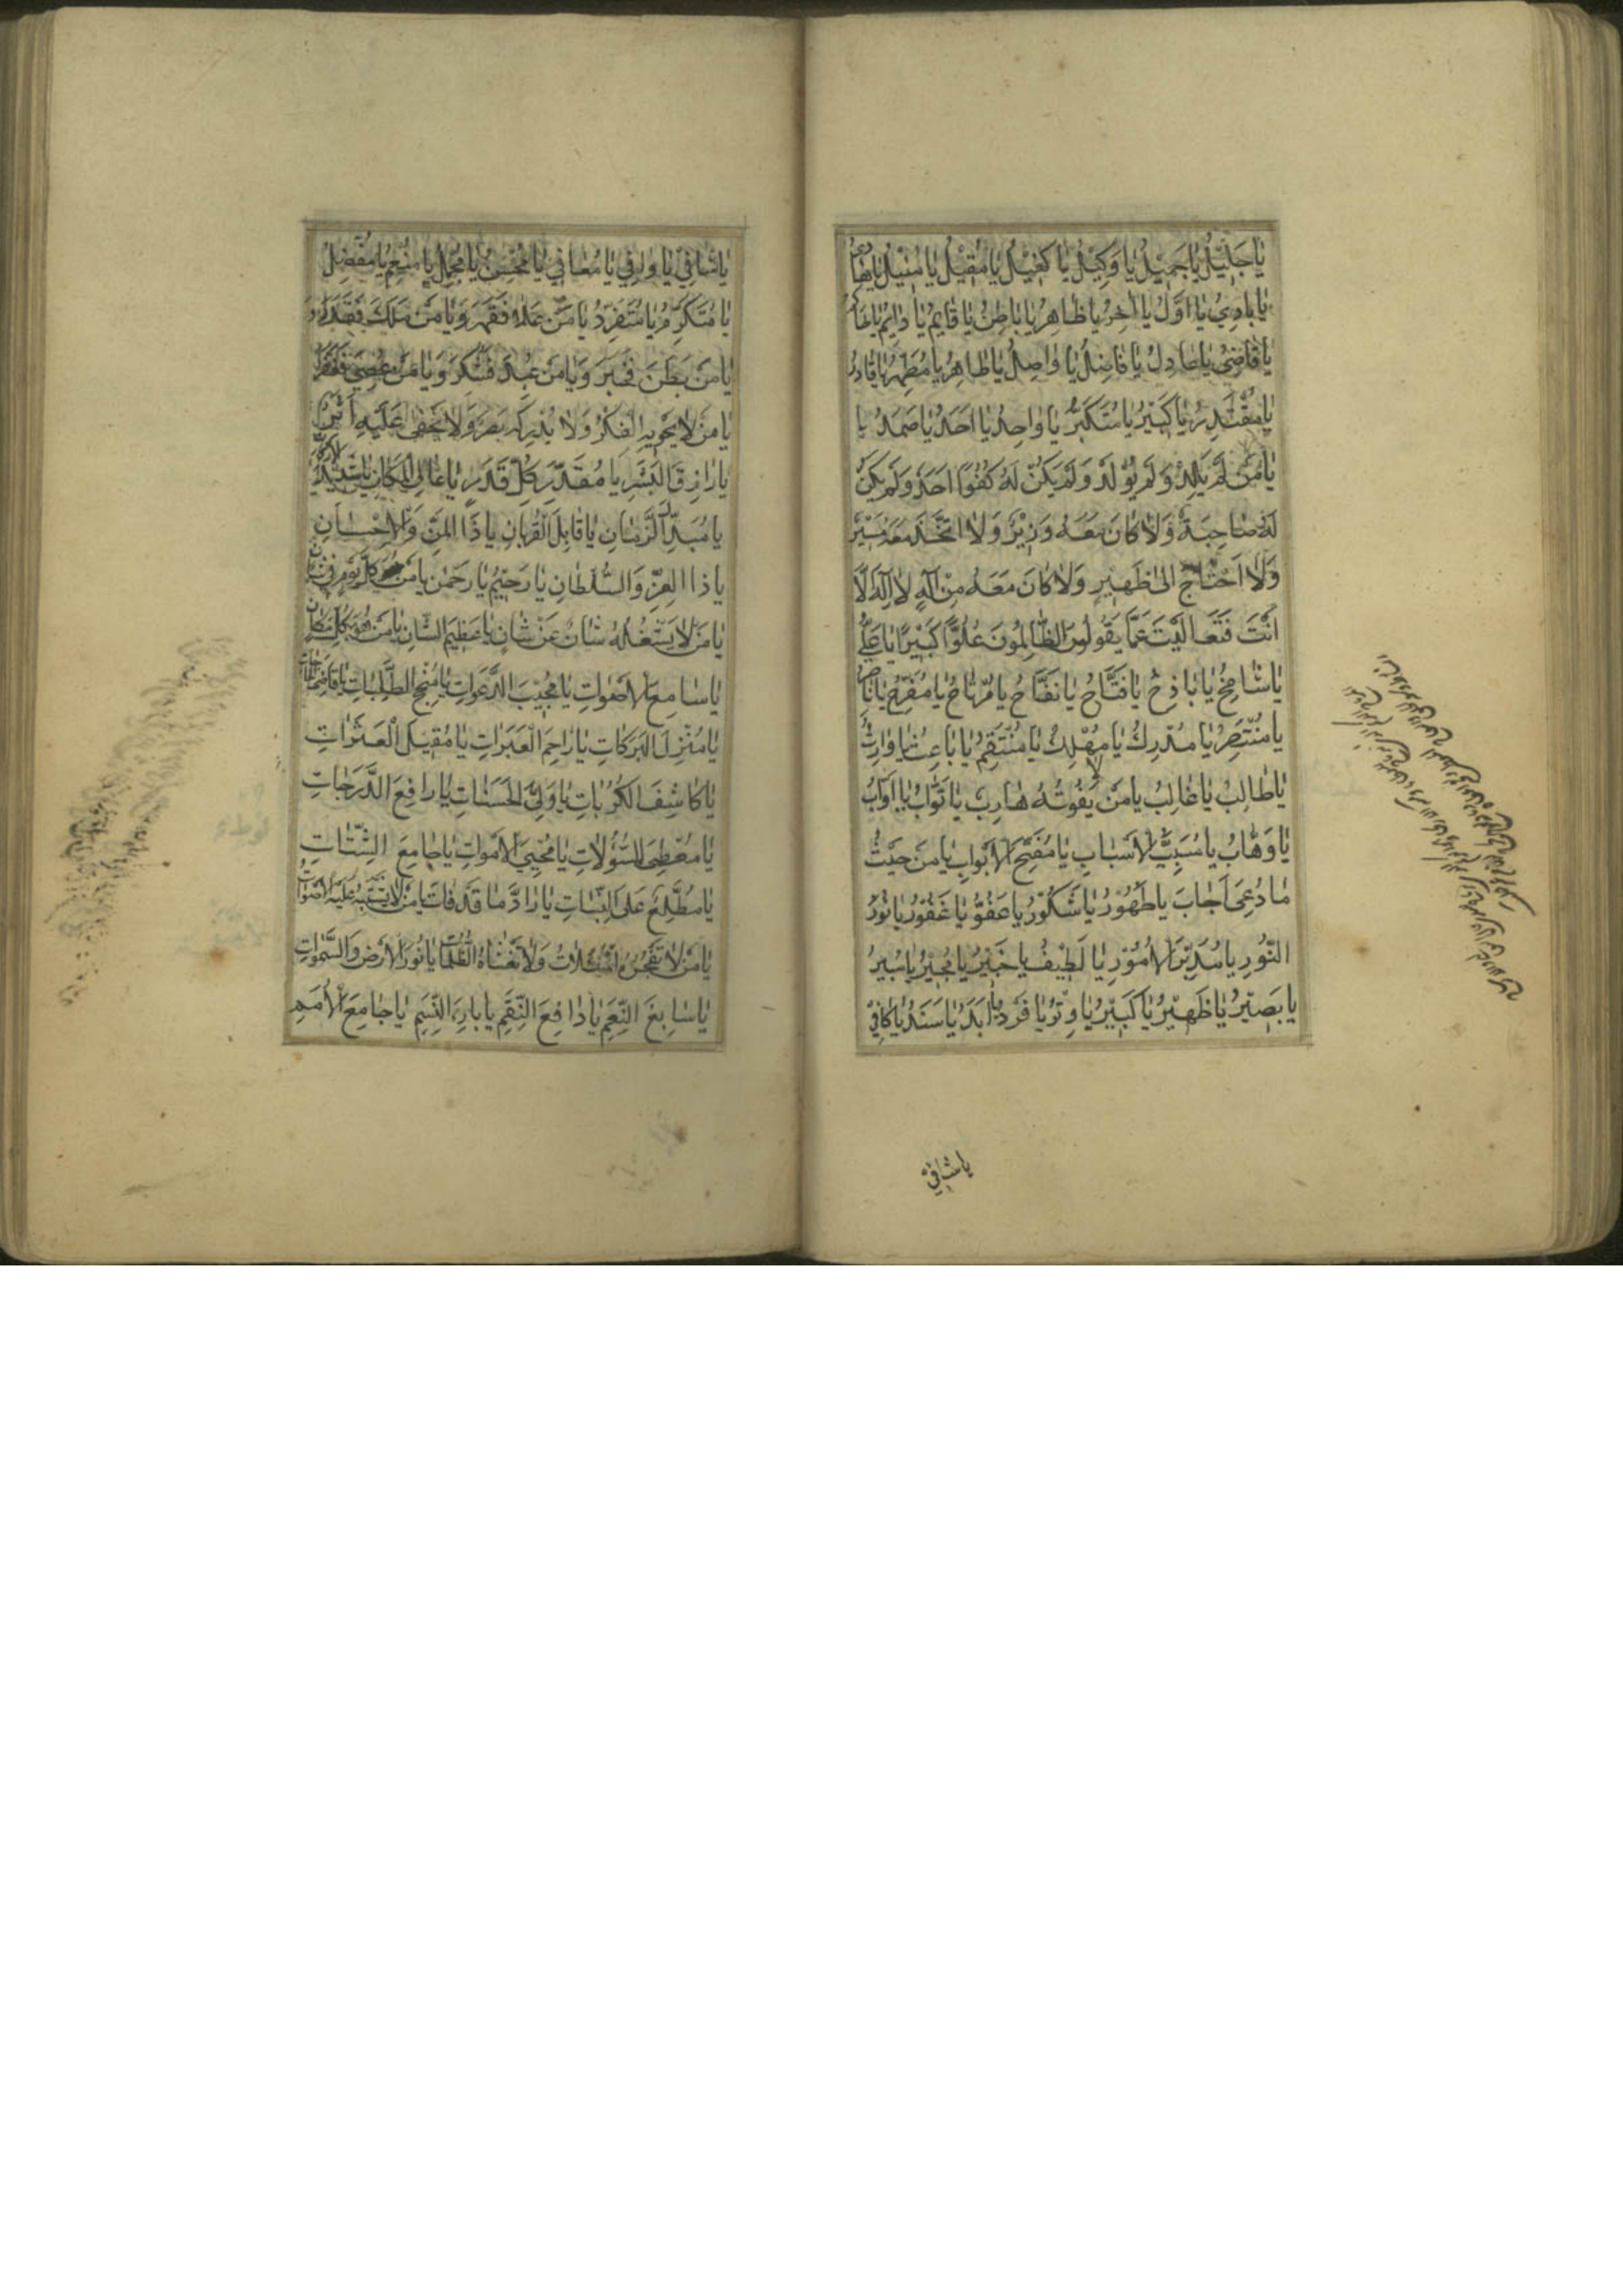 يا جَليلُ يا جَميلُ يا وَكيلُ يا كَفيلُ يا مُقيلُ يا مُنيلُ يا
يا بادِئُ يا اَوَّلُ يا اخِرُ يا ظاهِرُ يا باطِنُ يا قائِمُ يا دائِمُ يا
يا قاضِي يا عادِلُ يا فاضِلُ يا واصِلُ يا طاهِرُ يا مُطَهِّرُ يا قادِرُ
يا مُقْتَدِرُ يا كَبيرُ يا مُتَكَبِّرُ يا واحِدُ يا اَحَدُ يا صَمَدُ يا
يا مَنْ لَمْ يَلِدْ وَلَمْ يُولَدْ وَلَمْ يَكُنْ لَهُ كُفُوًا اَحَدٌ وَلَمْ يَكُنْ
لَهُ صاحِبَةٌ وَلا كانَ مَعَهُ وَزيرٌ وَلا اتَّخَذَ مَعَهُ مُشيرٌ
وَلا احْتاجَ اِلى ظَهيرٍ وَلا كانَ مَعَهُ مِنْ اِلهٍ لا اِلهَ اِلّا
اَنْتَ فَتَعالَيْتَ عَمّا يَقُولُونَ الظّالِمُونَ عُلُوًّا كَبيرًا يا عَلِيُّ
يا شامِخُ يا باذِخُ يا فَتّاحُ يا نَفّاحُ يا مُرْتاحُ يا مُفَرِّحُ يا ناصِرُ
يا مُنْتَصِرُ يا مُدْرِكُ يا مُهْلِكُ يا مُنْتَقِمُ يا باعِثُ يا وارِثُ
يا طالِبُ يا غالِبُ يا مَنْ لا يَفُوتُهُ هارِبٌ يا تَوّابُ يا اَوّابُ
يا وَهّابُ يا مُسَبِّبَ الاَسْبابِ يا مُفَتِّحَ الاَبْوابِ يا مَنْ حَيْثُ
ما دُعِيَ اَجابَ يا طَهُورُ يا شَكُورُ يا عَفُوُّ يا غَفُورُ يا نُورَ
النُّورِ يا مُدَبِّرَ الاُمُورِ يا لَطيفُ يا خَبيرُ يا مُجيرُ يا مُبيرُ
يا بَصيرُ يا ظَهيرُ يا كَبيرُ يا وِتْرُ يا فَرْدُ يا اَبَدُ يا سَنَدُ يا كافي
يا شافي
يا شافي يا وافي يا مُعافي يا مُحْسِنُ يا مُجْمِلُ يا مُنْعِمُ يا مُفْضِلُ
يا مُتَكَرِّمُ يا مُتَفَرِّدُ يا مَنْ عَلا فَقَهَرَ وَيا مَنْ مَلَكَ فَقَدَرَ
يا مَنْ بَطَنَ فَخَبَرَ وَيا مَنْ عُبِدَ فَشَكَرَ وَيا مَنْ عُصِيَ فَغَفَرَ
يا مَنْ لا يَحْويهِ الفِكَرُ وَلا يُدْرِكُهُ بَصَرٌ وَلا يَخْفى عَلَيْهِ اَثَرٌ
يا رازِقَ البَشَرِ يا مُقَدِّرَ كُلِّ قَدَرٍ يا عالِيَ المَكانِ يا شَديدَ الاَرْكانِ
يا مُبَدِّلَ الزَّمانِ يا قابِلَ القُرْبانِ يا ذَا المَنِّ وَالاِحْسانِ
يا ذَا العِزِّ وَالسُّلْطانِ يا رَحيمُ يا رَحْمنُ يا مَنْ هُوَ كُلَّ يَوْمٍ في شانٍ
يا مَنْ لا يَشْغَلُهُ شانٌ عَنْ شانٍ يا عَظيمَ الشّانِ يا مَنْ هُوَ بِكُلِّ مَكانٍ
يا سامِعَ الاَصْواتِ يا مُجيبَ الدَّعَواتِ يا مُنْجِحَ الطَّلِباتِ يا قاضِيَ الحاجاتِ
يا مُنْزِلَ البَرَكاتِ يا راحِمَ العَبَراتِ يا مُقيلَ العَثَراتِ
يا كاشِفَ الكُرُباتِ يا وَلِيَّ الحَسَناتِ يا رافِعَ الدَّرَجاتِ
يا مُعْطِيَ السُّؤُلاتِ يا مُحْيِيَ الاَمْواتِ يا جامِعَ الشَّتاتِ
يا مُطَّلِعُ عَلَى النِّيّاتِ يا رادَّ ما قَدْ فاتَ يا مَنْ لا تَشْتَبِهُ عَلَيْهِ الاَصْواتُ
يا مَنْ لا تُضْجِرُهُ المَسْئَلاتُ وَلا تَغْشاهُ الظُّلُماتُ يا نُورَ الاَرْضِ وَالسَّمواتِ
يا سابِغَ النِّعَمِ يا دافِعَ النِّقَمِ يا بارِئَ النَّسَمِ يا جامِعَ الاُمَمِ